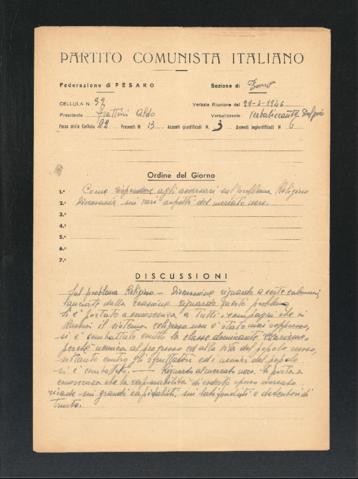 PARTITO COMUNISTA ITALIANO
Federazione di PESARO Sezione di
CELLULA N. 92 Verbale Riunione del 1946
Presidente Aldo Verbalizzante
Forza della Cellula 22 Presenti N. 13 Assenti giustificati N. 3 Assenti ingiustificati N. 6
Ordine del Giorno
1.° Come rispondere agli avversari sul problema Religioso
2.° Discussione sui vari aspetti del mercato nero.
3.°
4.°
5.°
6.°
7.°
DISCUSSIONI
Sul problema Religioso - Discussione riguardo a certe calunnie
lanciate dalla reazione riguardo questo problema
si è portato a conoscenza a tutti i compagni che in
il sistema religioso non è stato mai soppresso,
si è combattuto contro la classe dominante
perché nemica al progresso ed alla vita del popolo
soltanto contro gli sfruttatori ed i nemici del popolo
si è combattuto. Riguardo al mercato nero si porta a
conoscenza che la responsabilità di codesto
ricade sui grandi capitalisti, sui latifondisti e detentori di